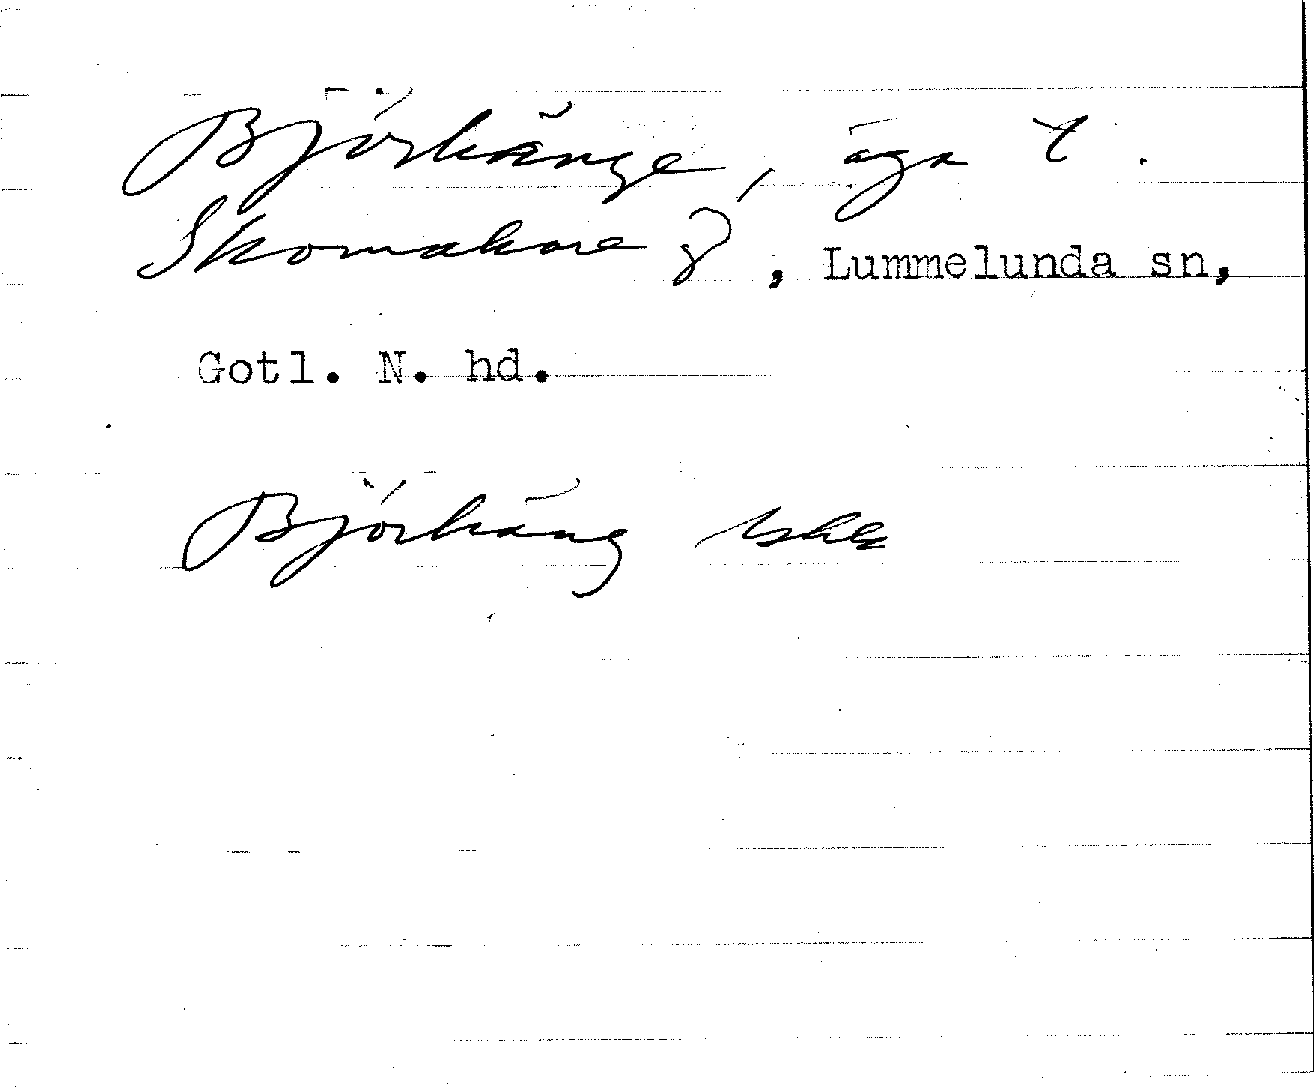 Björkänge, äga t.
Skomakare, Lummelunda sn,
Gotl. N. hd.
Björkäng